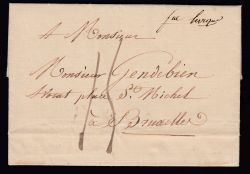 A Monsieur
Monsieur Gendebien
avocat place St Michel
à Bruxelles